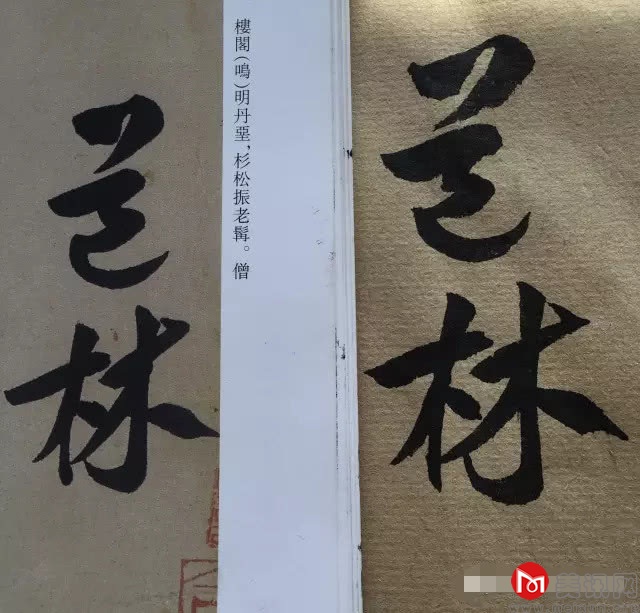 道林
樓閣(鳴)明丹堊,杉松振老髯。僧
道林